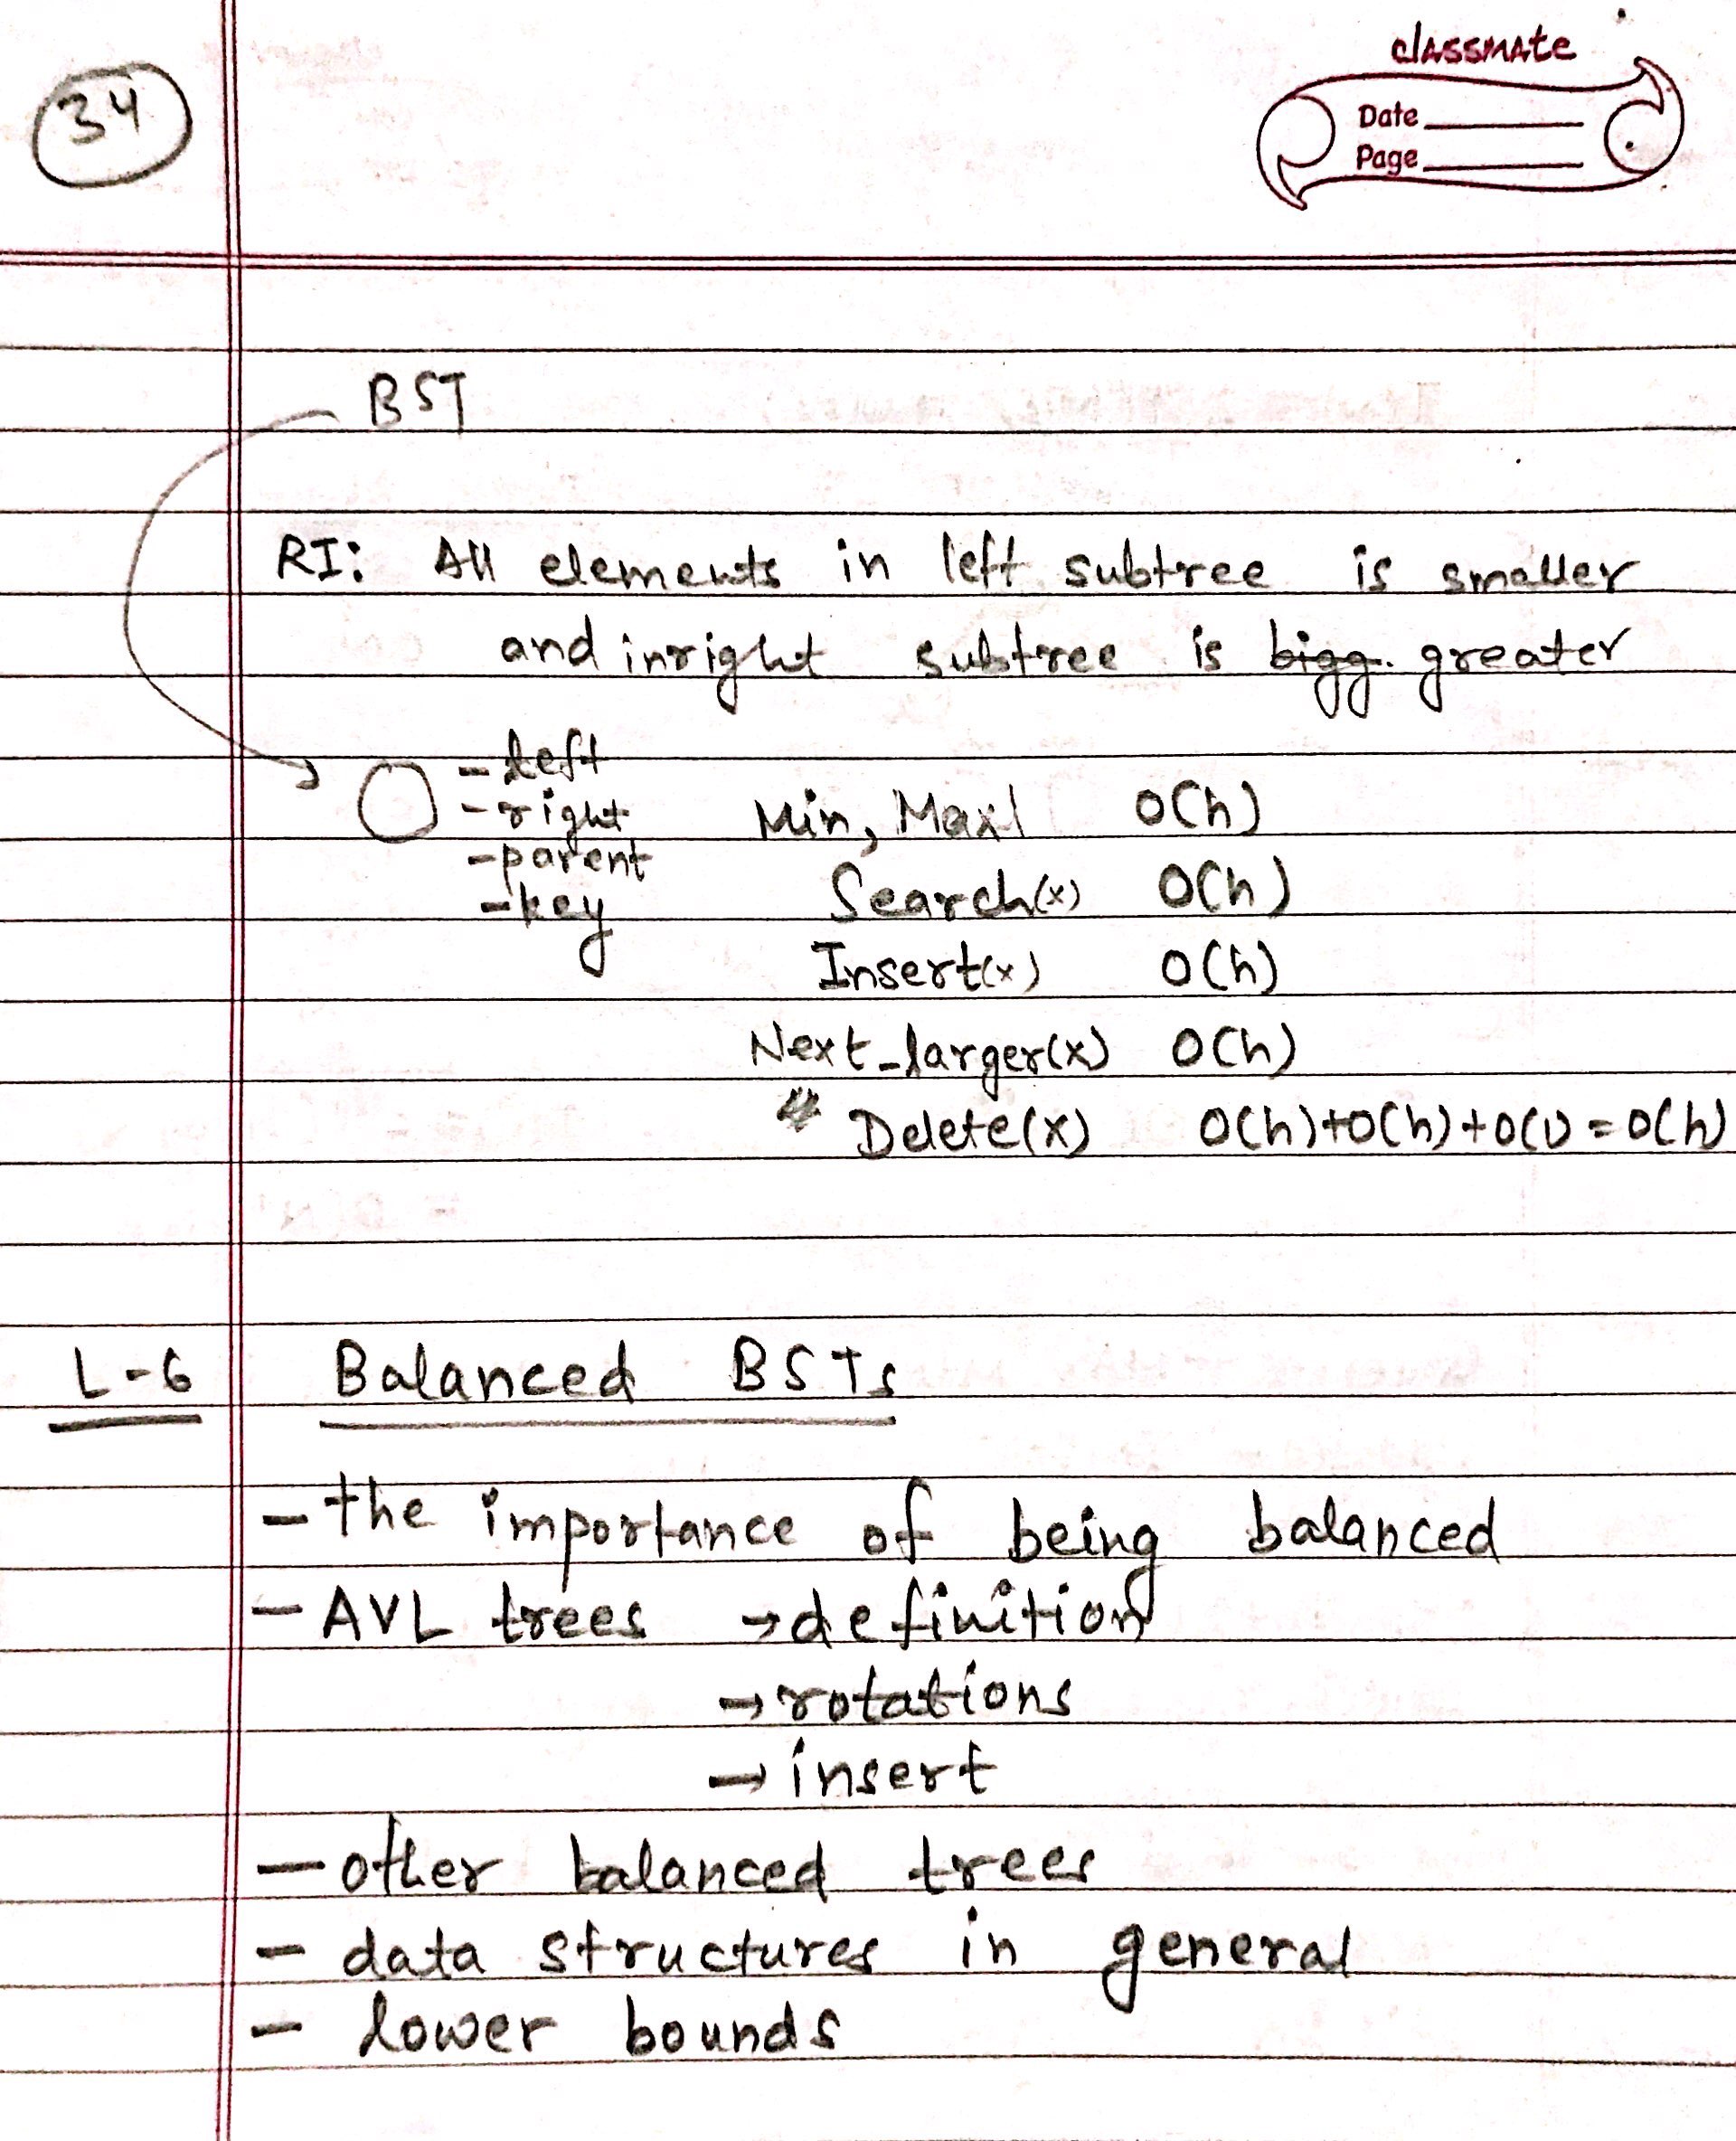 34
classmate
Date
Page
BST
RI: All elements in left subtree is smaller
and in right subtree is bigg. greater
- left
- right
- parent
- key
Min, Max O(h)
Search(x) O(h)
Insert(x) O(h)
Next_larger(x) O(h)
Delete(x) O(h)+O(h)+O(1) = O(h)
L-6 Balanced BSTs
- the importance of being balanced
- AVL trees → definition
→ rotations
→ insert
- other balanced trees
- data structures in general
- lower bounds